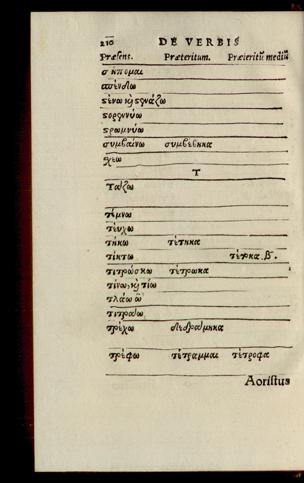 210 DE VERBIS
Præsens. Præteritum. Præteritū mediū
σήπομαι
σπένδω
στένω καὶ στενάζω
στορεννύω
στρωννύω
συμβαίνω συμβέβηκα
σχέω
T
Τάζω
τέμνω
τεύχω
τήκω τέτηκα
τίκτω τέτοκα. β.
τιτρώσκω τέτρωκα
τίνω, καὶ τίω
τλάω ῶ
τιτράω
τρέχω δεδράμηκα
τρέφω τέτραμμαι τέτροφα
Aoristus